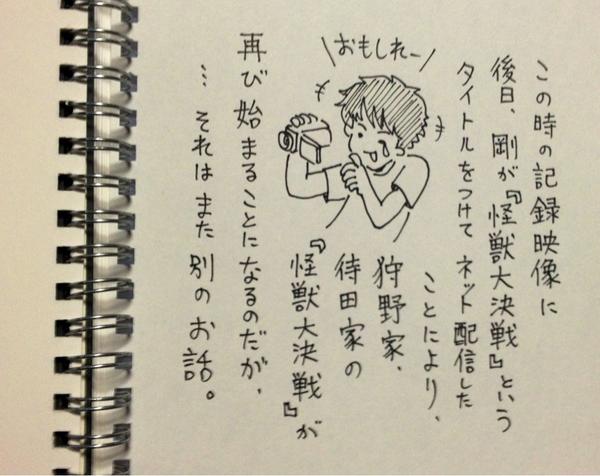 この時の記録映像に
後日、剛が『怪獣大決戦』という
タイトルをつけてネット配信した
ことにより、
狩野家、
待田家の
『怪獣大決戦』が
再び始まることになるのだが、
…それはまた別のお話。
\おもしれー/